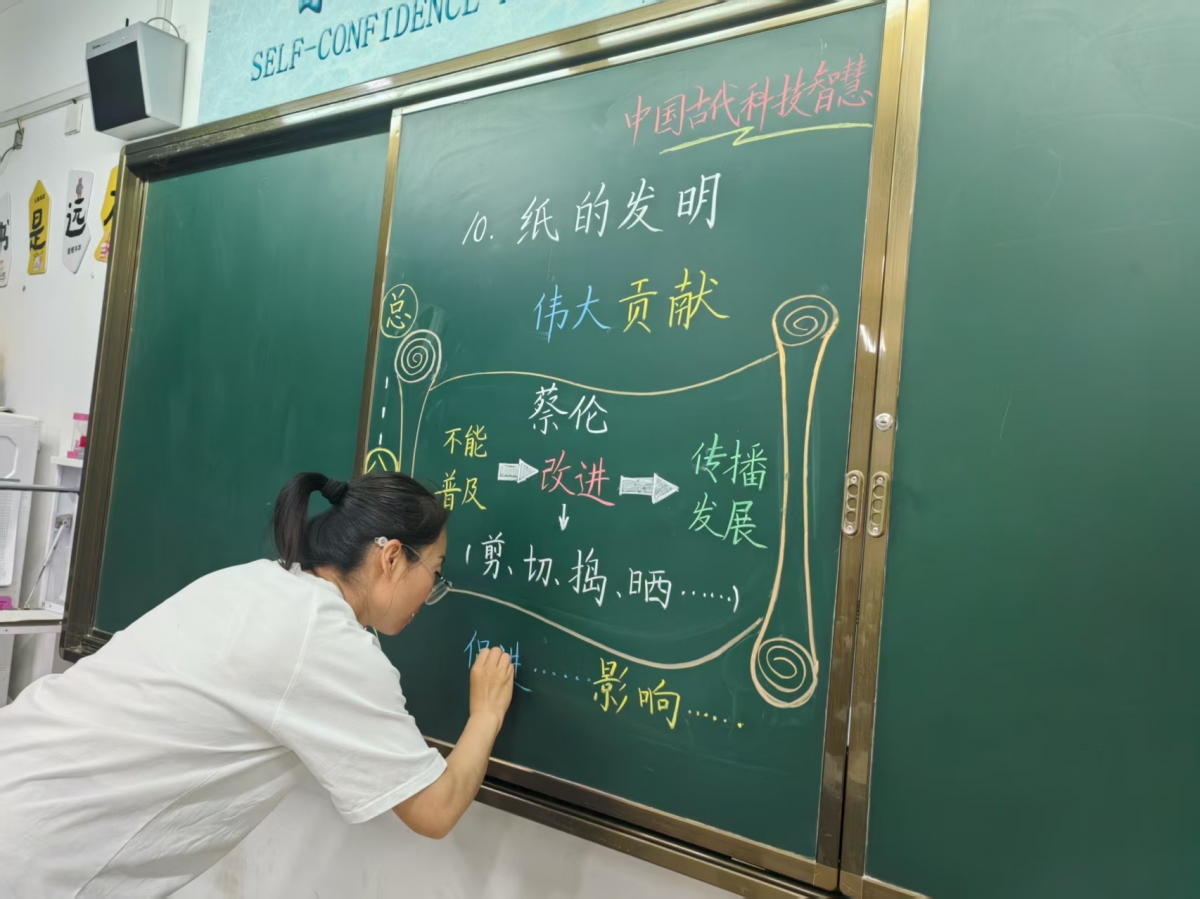 SELF-CONFIDENCE
书
是
远
中国古代科技智慧
10. 纸的发明
伟大贡献
总
蔡伦
不能普及
改进
传播发展
(剪、切、捣、晒……)
促进……影响……